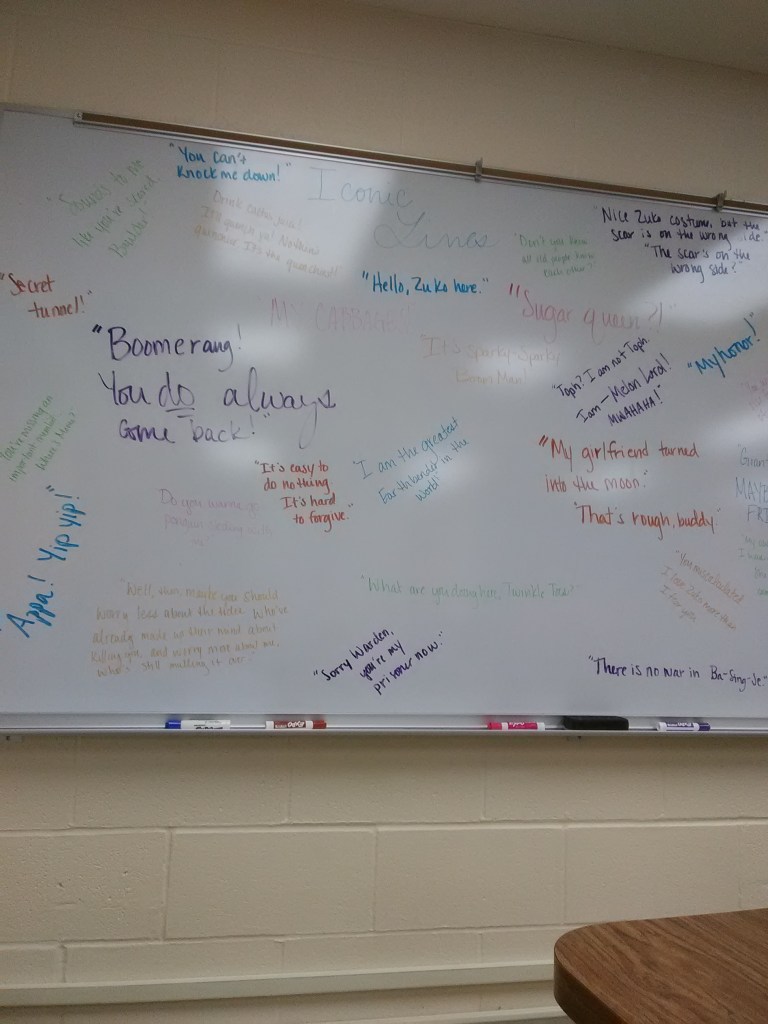 "You can't
knock me down!"
Iconic
Lines
"Sounds to me
like you're scared
Boulder!"
Drink cactus juice!
It'll quench ya! Nothin's
quenchier. It's the quenchiest!
"Don't you know
all old people know
each other?"
"Nice Zuko costume, but the
scar is on the wrong side."
"The scar's on the
wrong side?"
"Secret
tunnel!"
"Hello, Zuko here."
"MY CABBAGES!"
"Sugar queen?!"
"Boomerang!
You do always
come back!"
"It's Sparky-Sparky
Boom Man!"
"Toph? I am not Toph.
I am—Melon Lord!
MWAHAHA!"
"My honor!"
"It's easy to
do nothing.
It's hard
to forgive."
"I am the greatest
Earthbender in the
World!
"My girlfriend turned
into the moon."
"That's rough, buddy."
MAYBE
FRI
Do you wanna go
penguin-sledding with
"Appa! Yip yip!"
"Well, then maybe you should
worry less about the tides. Who've
already made up their mind about
killing you, and worry more about me.
Who's still mulling it over."
"What are you doing here, Twinkle Toes?"
"Sorry Warden,
you're my
prisoner now."
"There is no war in Ba-Sing-Se."